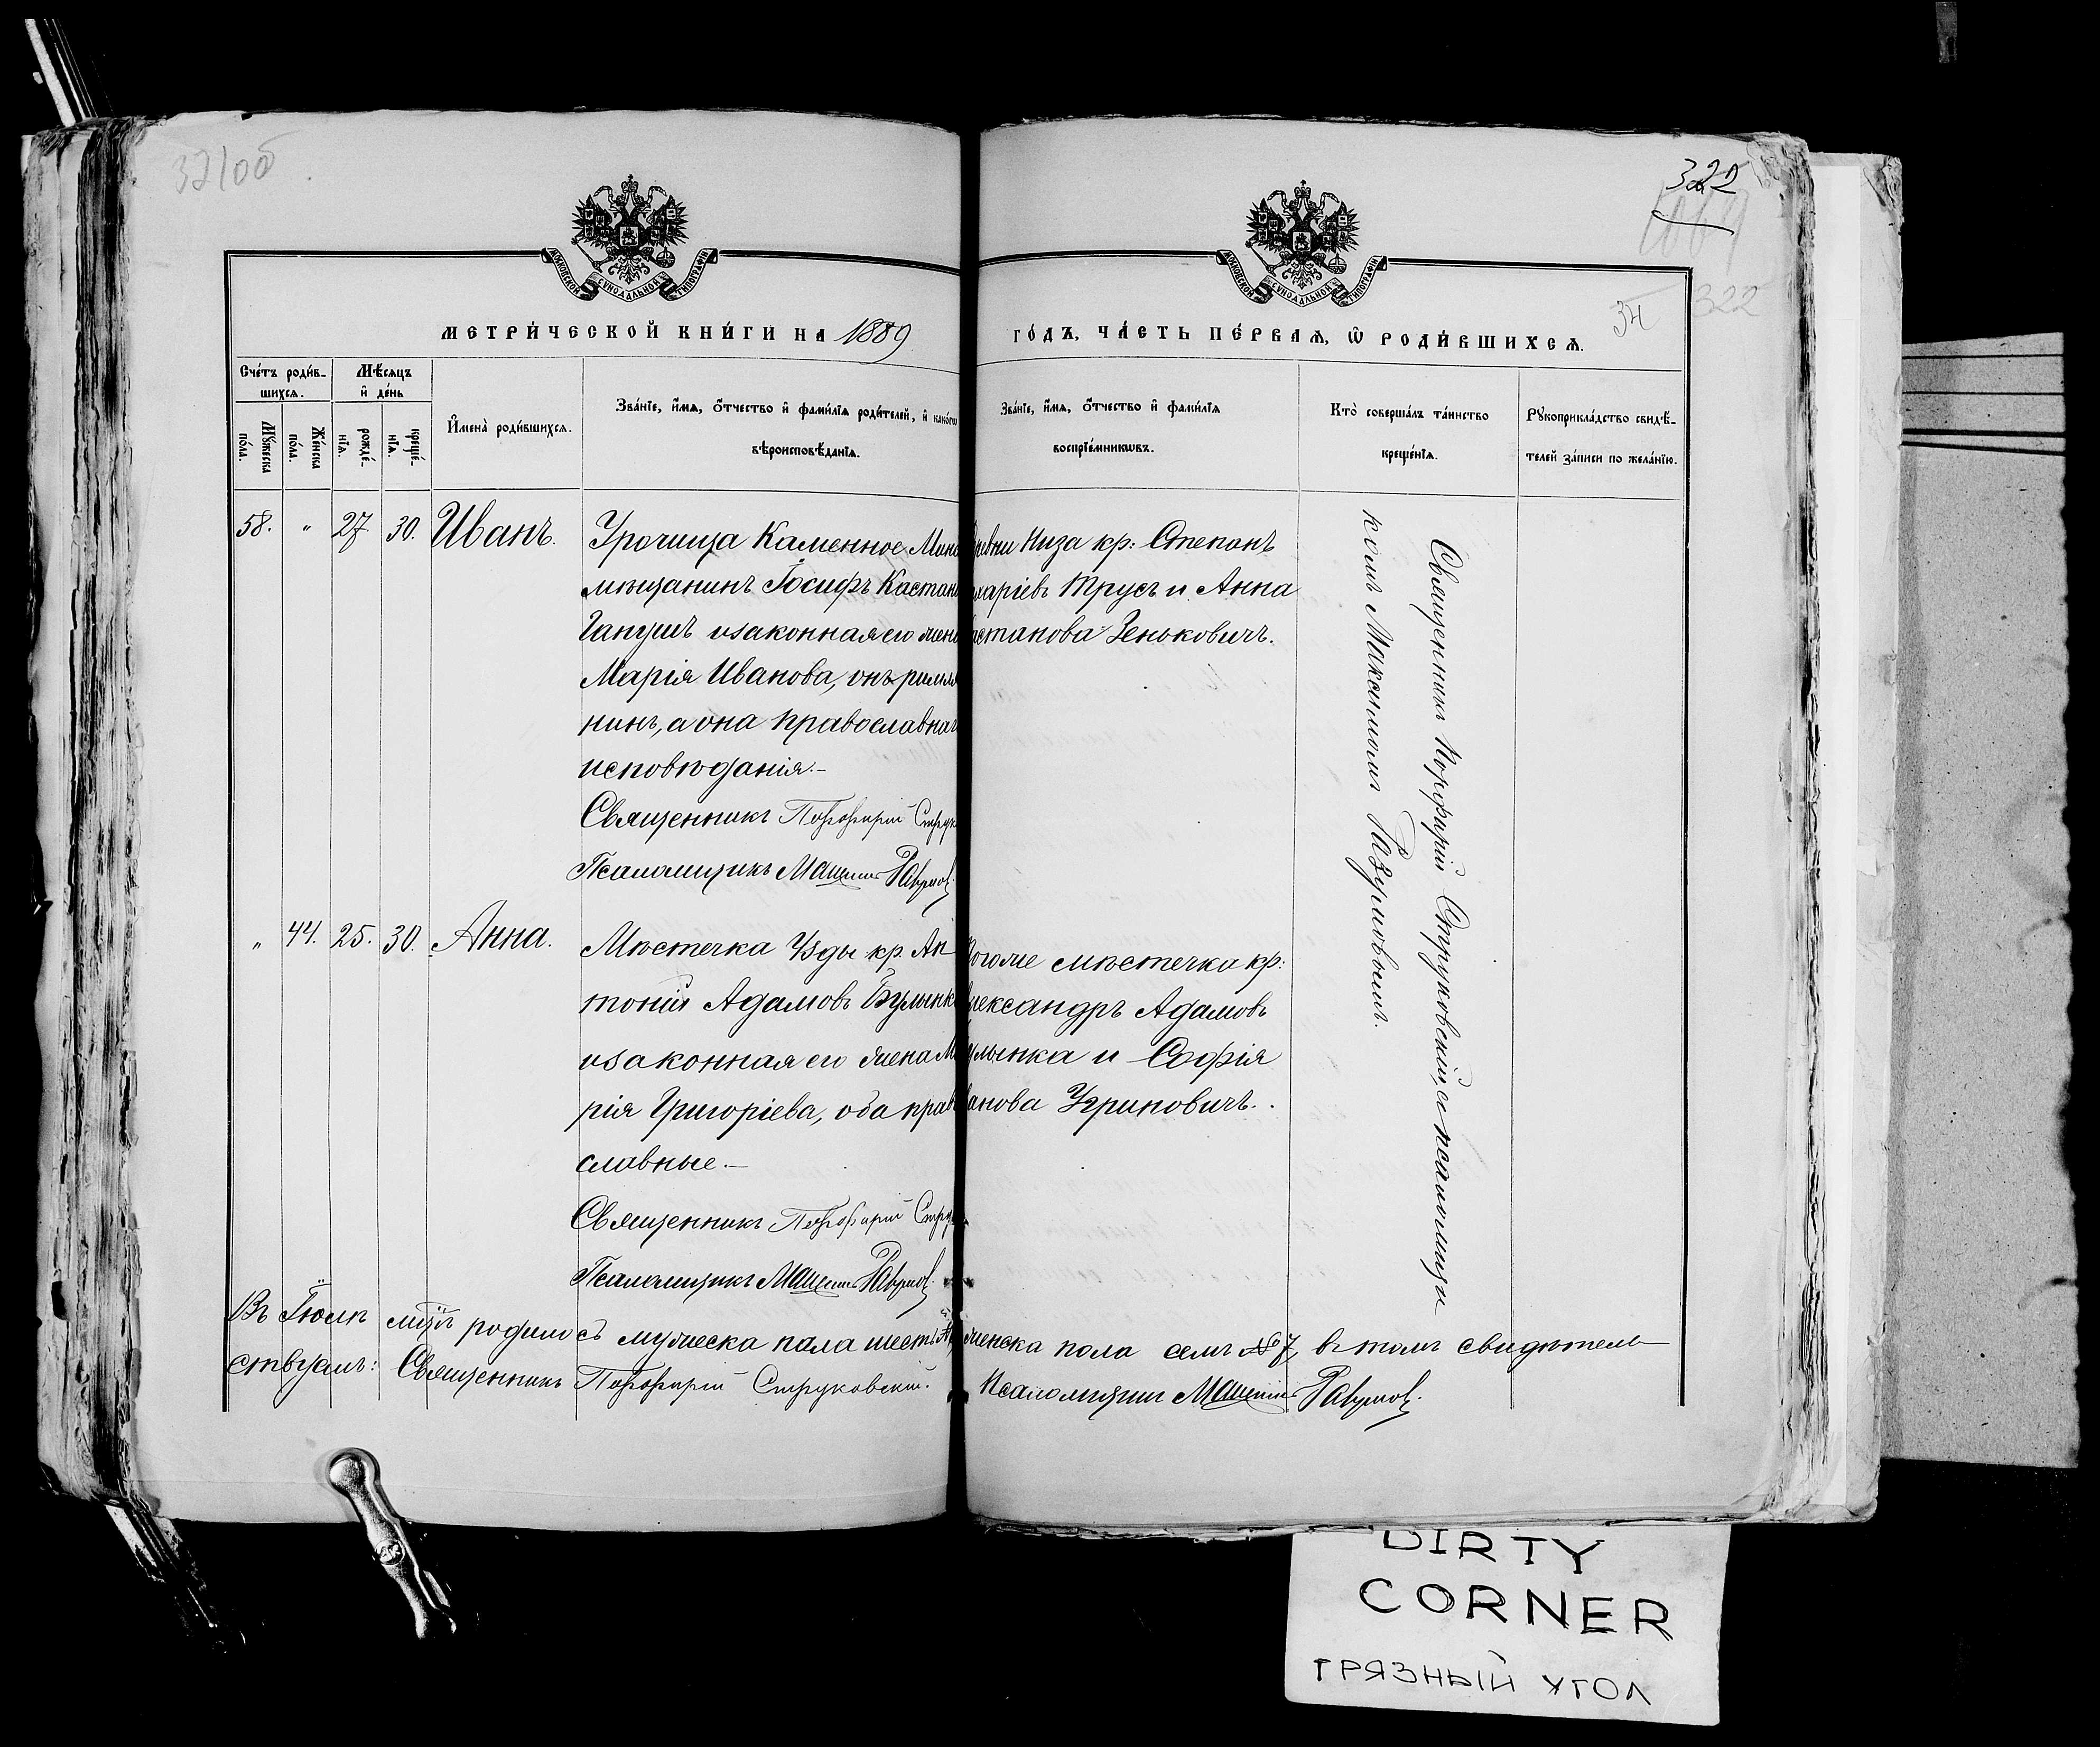 321об
322
34
322
МОСКОВСКОЙ СѴНОДАЛЬНОЙ ТИПОГРАФІИ
МОСКОВСКОЙ СѴНОДАЛЬНОЙ ТИПОГРАФІИ
МЕТРИ́ЧЕСКОЙ КНИ́ГИ НА 1889
ГО́ДЪ, ЧА́СТЬ ПЕ́РВАѦ, Ѡ҆ РОДИ́ВШИХСѦ.
Сче́тъ роди́в-
шихсѧ.
Мѣ́сѧцъ
и҆ де́нь
Мꙋ́жеска
по́ла.
Же́нска
по́ла.
рожде́-
нїѧ.
креще́-
нїѧ.
И҆мена̀ роди́вшихсѧ.
Зва́нїе, и҆́мѧ, ѻ҆́тчество и҆ фами́лїѧ роди́телей, и҆ како́гѡ
вѣроисповѣ́данїѧ.
Зва́нїе, и҆́мѧ, ѻ҆́тчество и҆ фами́лїѧ
воспрїе́мникѡвъ.
Кто̀ соверша́лъ та́инство
креще́нїѧ.
Рꙋкоприкла́дство свидѣ́-
телей за́писи по жела́нїю.
58. " 27 30. Иванъ.
Урочища Каменное Минс
мѣщанинъ Іосифъ Кастан
Гапушъ и законная его жена
Марія Иванова, онъ римля
нинъ, а она православнаг
исповѣданія.-
Священникъ Порфирій Струк
Псаломщикъ Максимъ Разумов
ревни Низа кр: Степанъ
каріевъ Трусъ и Анна
астанова Зеньковичъ.
Священникъ Порфирій Струковскій, с псаломщи
комъ Максимомъ Разумовымъ.
" 44. 25. 30. Анна.
Мѣстечка Узды кр. Ан
тоній Адамовъ Булынк
и законная его жена М
рія Григоріева, оба прав
славные.-
Священникъ Порфирій Стру
Псаломщикъ Максимъ Разумов.
тогоже мѣстечка кр:
лександръ Адамовъ
улынка и Софія
анова Угриновичъ.
Въ Іюлѣ мцѣ родилось мужеска пола шесть женска пола семь №7, въ томъ свидѣтель-
ствуемъ: Священникъ Порфирій Струковскій. Псаломщикъ Максимъ Разумов.
DIRTY
CORNER
ГРЯЗНЫЙ УГОЛ